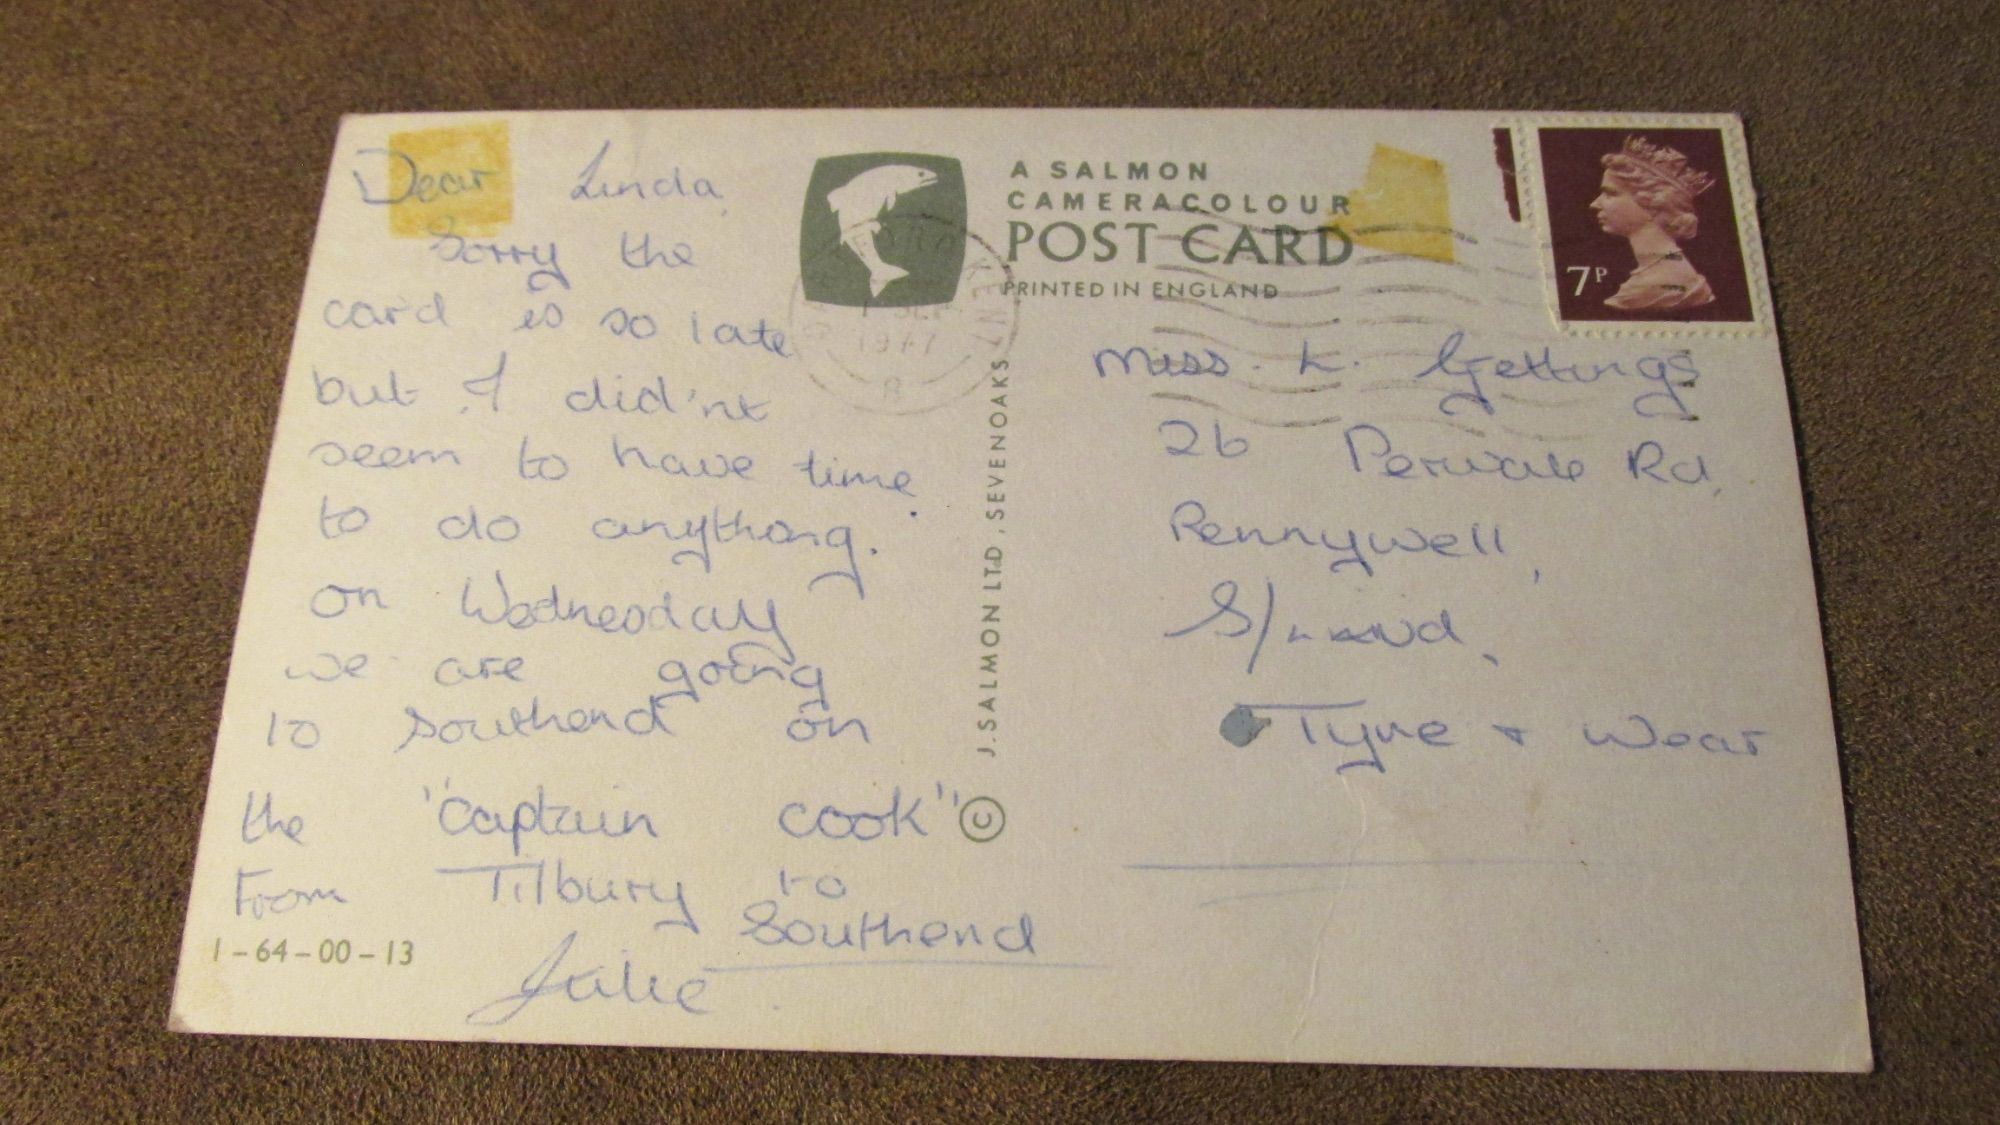 Dear Linda,
Sorry the
card is so late
but I did'nt
seem to have time
to do anything.
on Wednesday
we are going
to Southend on
the "captain cook"
From Tilbury to
Southend
Julie.
1-64-00-13
A SALMON
CAMERACOLOUR
POST CARD
PRINTED IN ENGLAND
J. SALMON LTD., SEVENOAKS
©
1977
7P
Miss. L. Gettings
26 Rd,
Pennywell,
S/Land,
Tyne + Wear